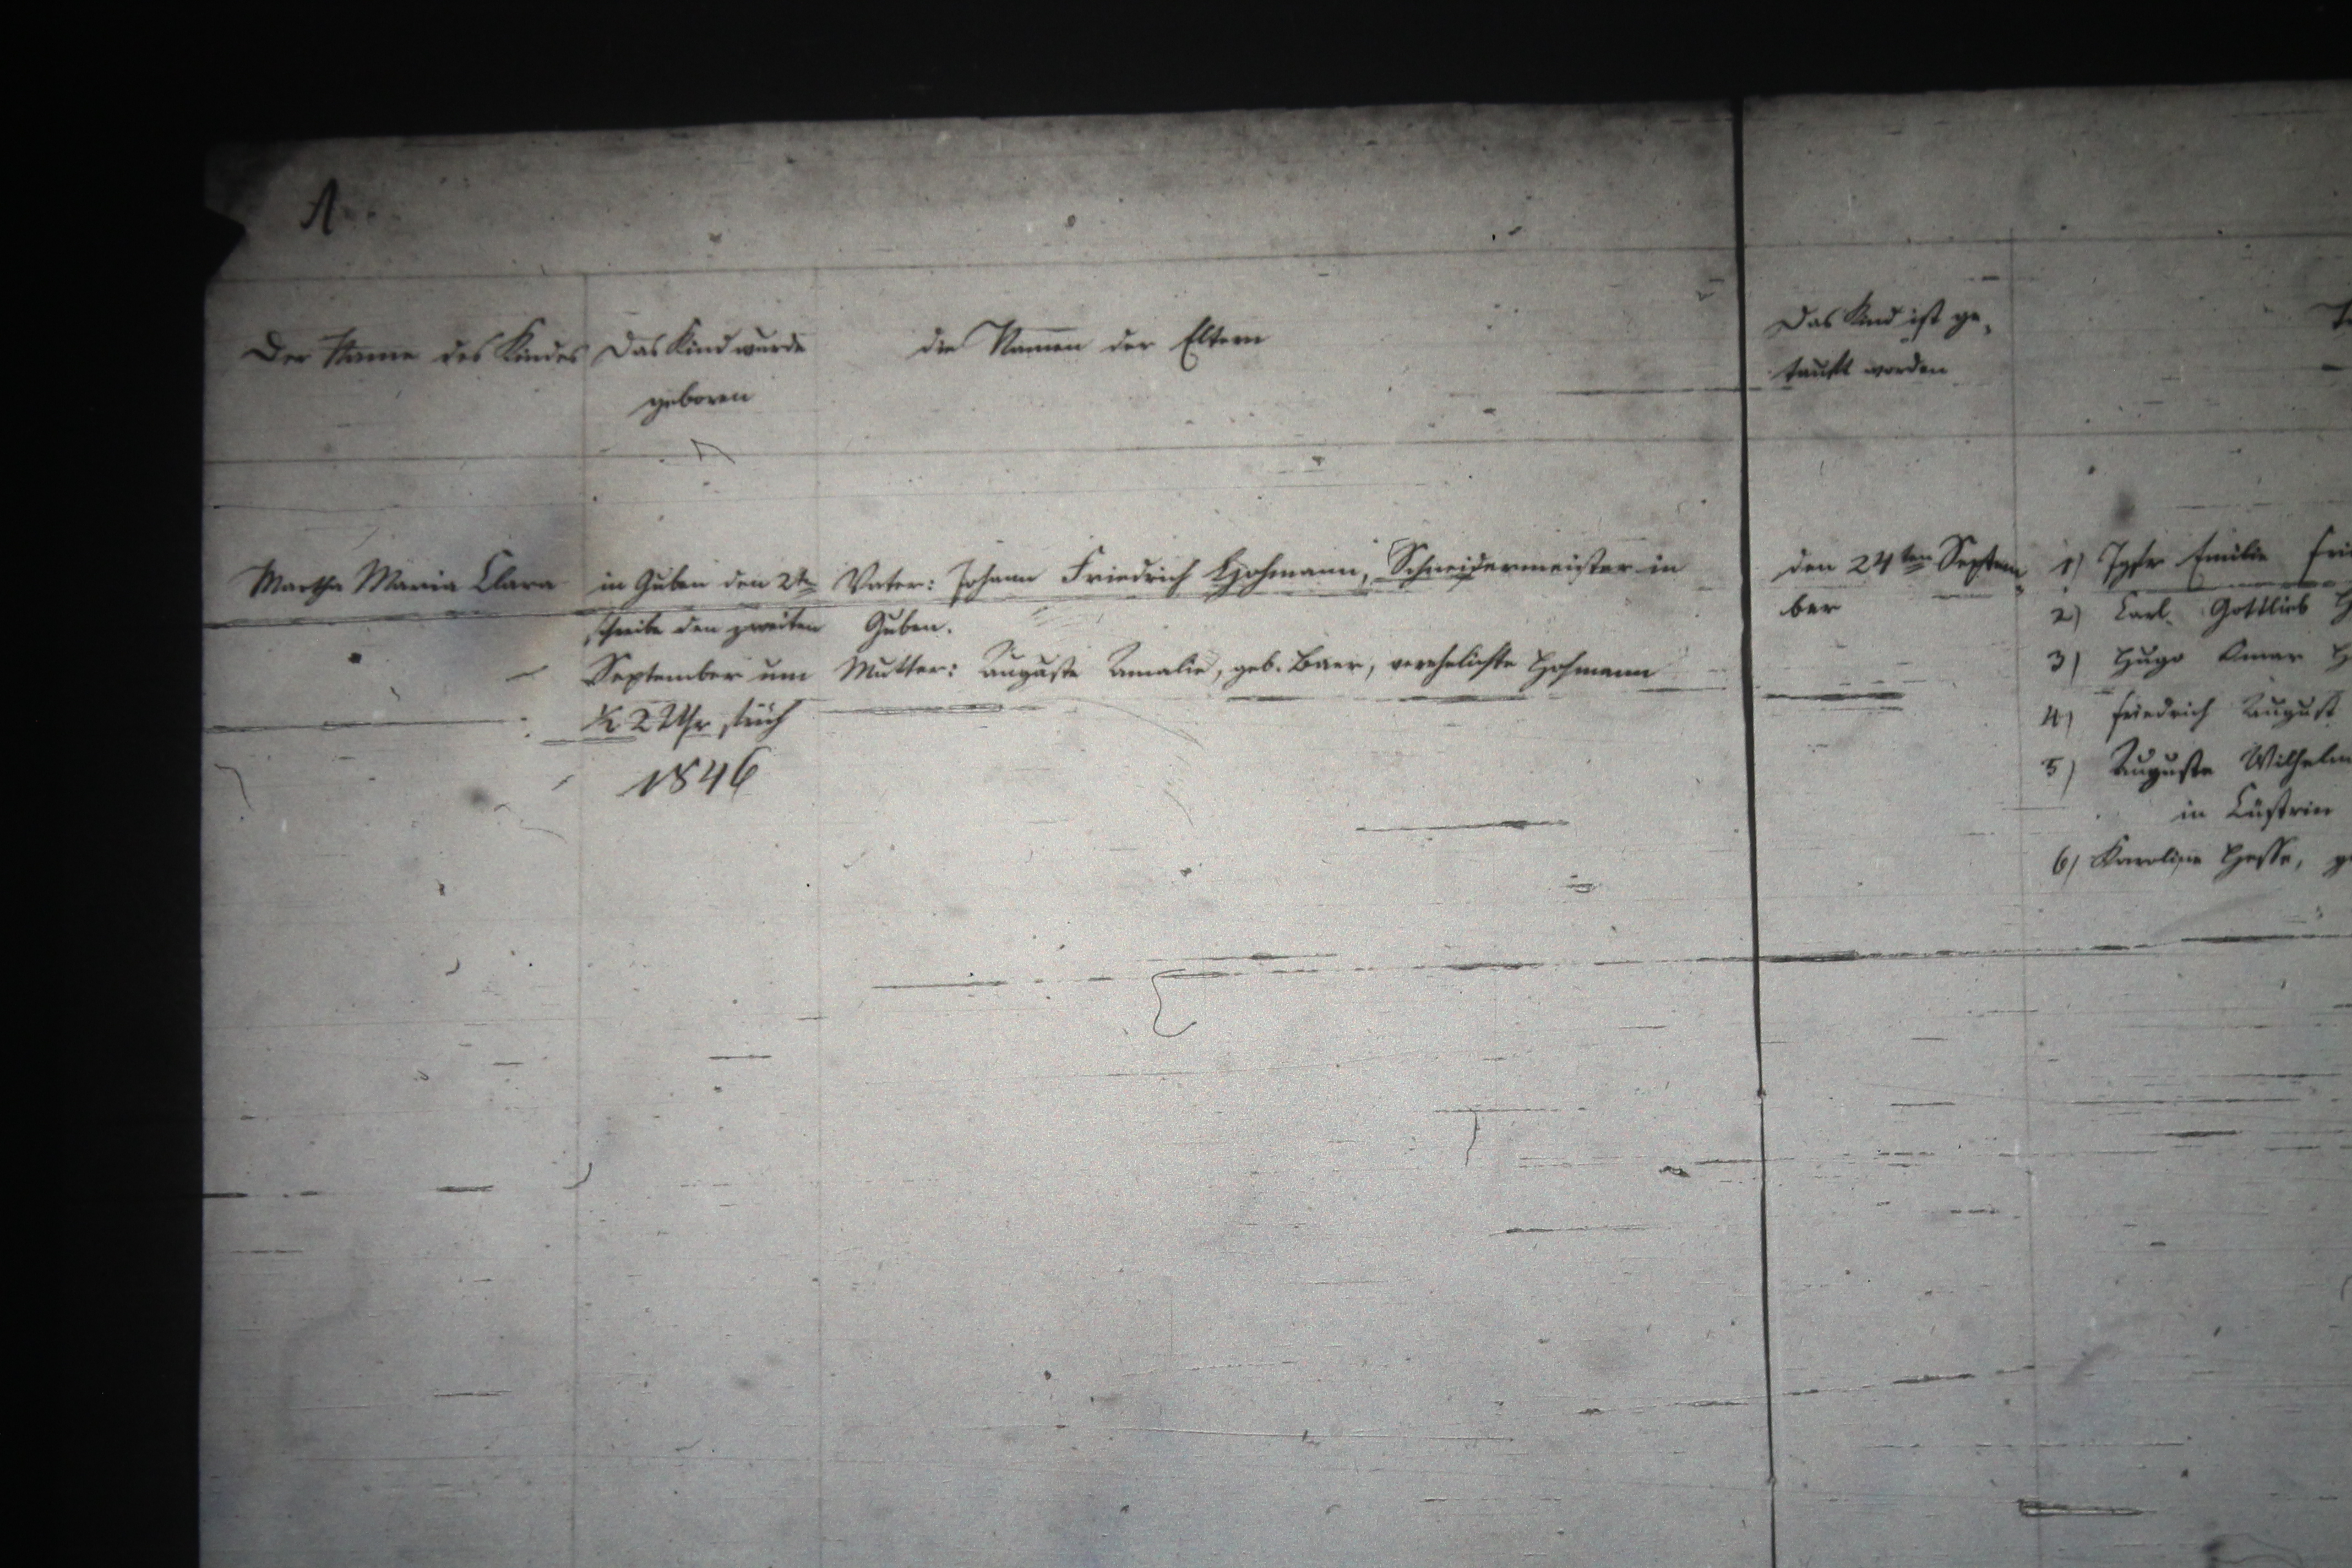 A.
Der Name des Kindes
Das Kind wurde
geboren
die Namen der Eltern
Das Kind ist ge-
tauft worden
Martha Maria Clara
in Guben den 2ten
schreibe den zweiten
September um
½ 2 Uhr früh
1846
Vater: Johann Friedrich Hohmann, Schneidermeister in
Guben.
Mutter: Auguste Amalie, geb. Baer, verehelichte Hohmann
den 24ten Septem-
ber
1) Jgfr Emilie
2) Carl Gottlieb
3) Hugo
4) Friedrich August
5) Auguste
in Cüstrin
6) Karoline Hesse,